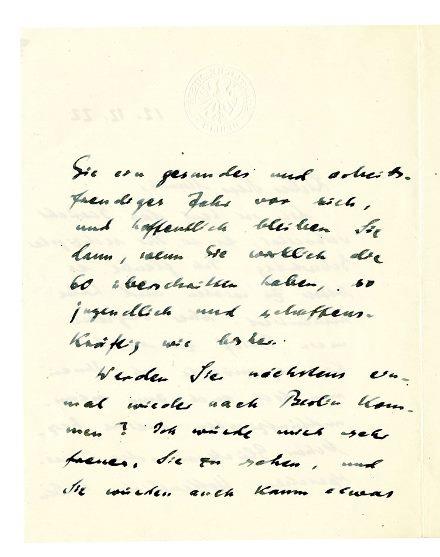 12. 12. 22
Sie ein gesundes und arbeits-
freudiges Jahr vor sich,
und hoffentlich bleiben Sie
dann, wenn Sie wirklich die
60 überschritten haben, so
jugendlich und schaffens-
kräftig wie bisher.
Werden Sie nächstens ein-
mal wieder nach Berlin kom-
men? Ich würde mich sehr
freuen, Sie zu sehen, und
Sie würden auch kaum etwas